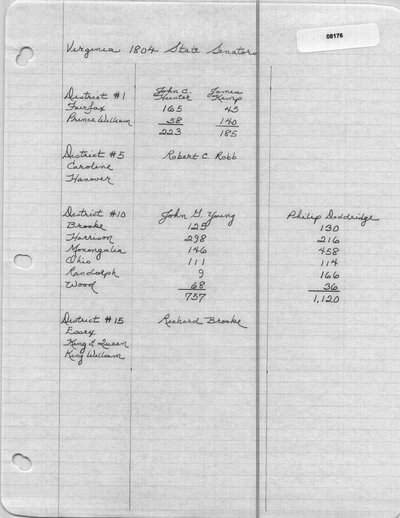 08176
Virginia 1804 State Senators
District #1 John C. Hunter James Kemp
Fairfax 165 45
Prince William 58 140
223 185
District #5 Robert C. Robb
Caroline
Hanover
District #10 John G. Young Philip Doddridge
Brooke 125 130
Harrison 298 216
Monongalia 146 458
Ohio 111 114
Randolph 9 166
Wood 68 36
757 1,120
District #15 Richard Brooke
Essex
King & Queen
King William